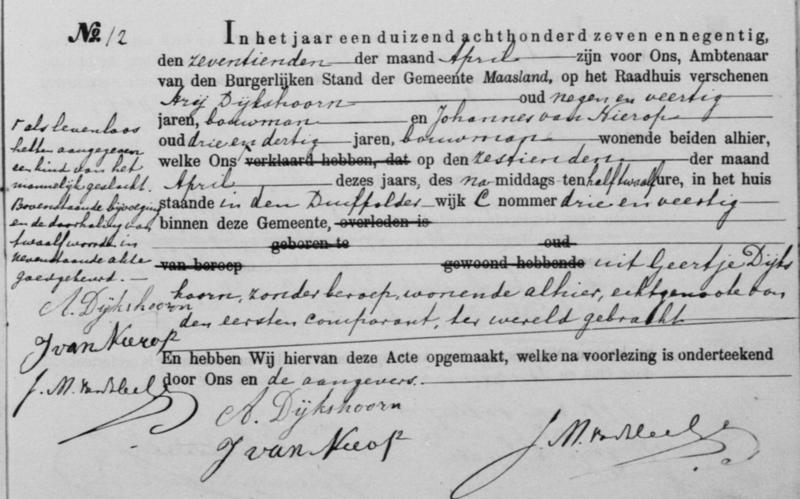 No. 12
In het jaar een duizend achthonderd zeven en negentig,
den zeventienden der maand April zijn voor Ons, Ambtenaar
van den Burgerlijken Stand der Gemeente Maasland, op het Raadhuis verschenen
Arij Dijkshoorn oud negen en veertig
jaren, bouwman en Johannes van Nierop
oud drie en dertig jaren, bouwman wonende beiden alhier,
welke Ons verklaard hebben, dat op den zestienden der maand
April dezes jaars, des na middags ten half twaalf ure, in het huis
staande in den Duifpolder wijk C nommer drie en veertig
binnen deze Gemeente, overleden is
geboren te oud
van beroep gewoond hebbende uit Geertje Dijks
hoorn, zonder beroep, wonende alhier, echtgenoote van
den eersten comparant, ter wereld gebracht
En hebben Wij hiervan deze Acte opgemaakt, welke na voorlezing is onderteekend
door Ons en de aangevers.
A. Dijkshoorn
J van Nierop
als levenloos
hebben aangegeven
een kind van het
mannelijk geslacht.
Bovenstaande bijvoeging
en de doorhaling van
twaalf woorden in
nevenstaande akte
goedgekeurd.
A. Dijkshoorn
J van Nierop